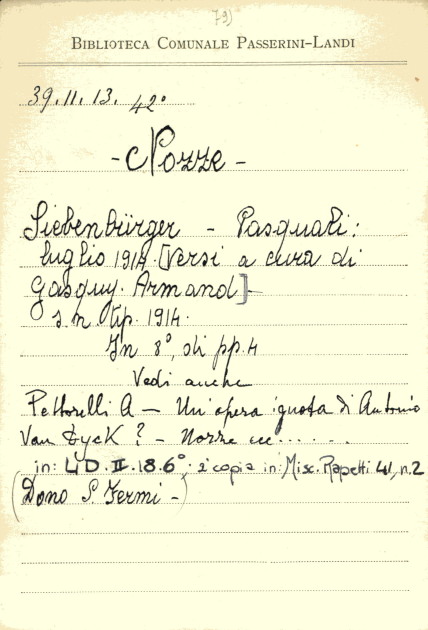 79)
BIBLIOTECA COMUNALE PASSERINI-LANDI
39.11.13. 42°
- Nozze -
Siebenbürger - Pasquali:
luglio 1914. [Versi a cura di
Gasquy. Armand]
s. n. tip. 1914.
In 8°, di pp. 4
Vedi anche
Pettorelli A - Un'opera ignota di Antonio
Van Dyck? - Nozze ecc......
in: 4D.II.18.6°. 2ª copia in: Misc. Rapetti 41, n.2
(Dono S. Fermi -)